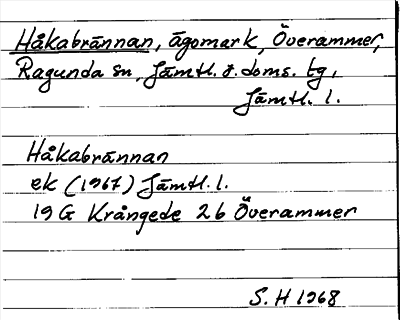 Håkabrännan, ägomark, Överammer,
Ragunda sn, Jämtl. ö. doms. tg,
Jämtl. l.
Håkabrännan
ek (1967) Jämtl. l.
19 G Krångede 2 b Överammer
S. H 1968